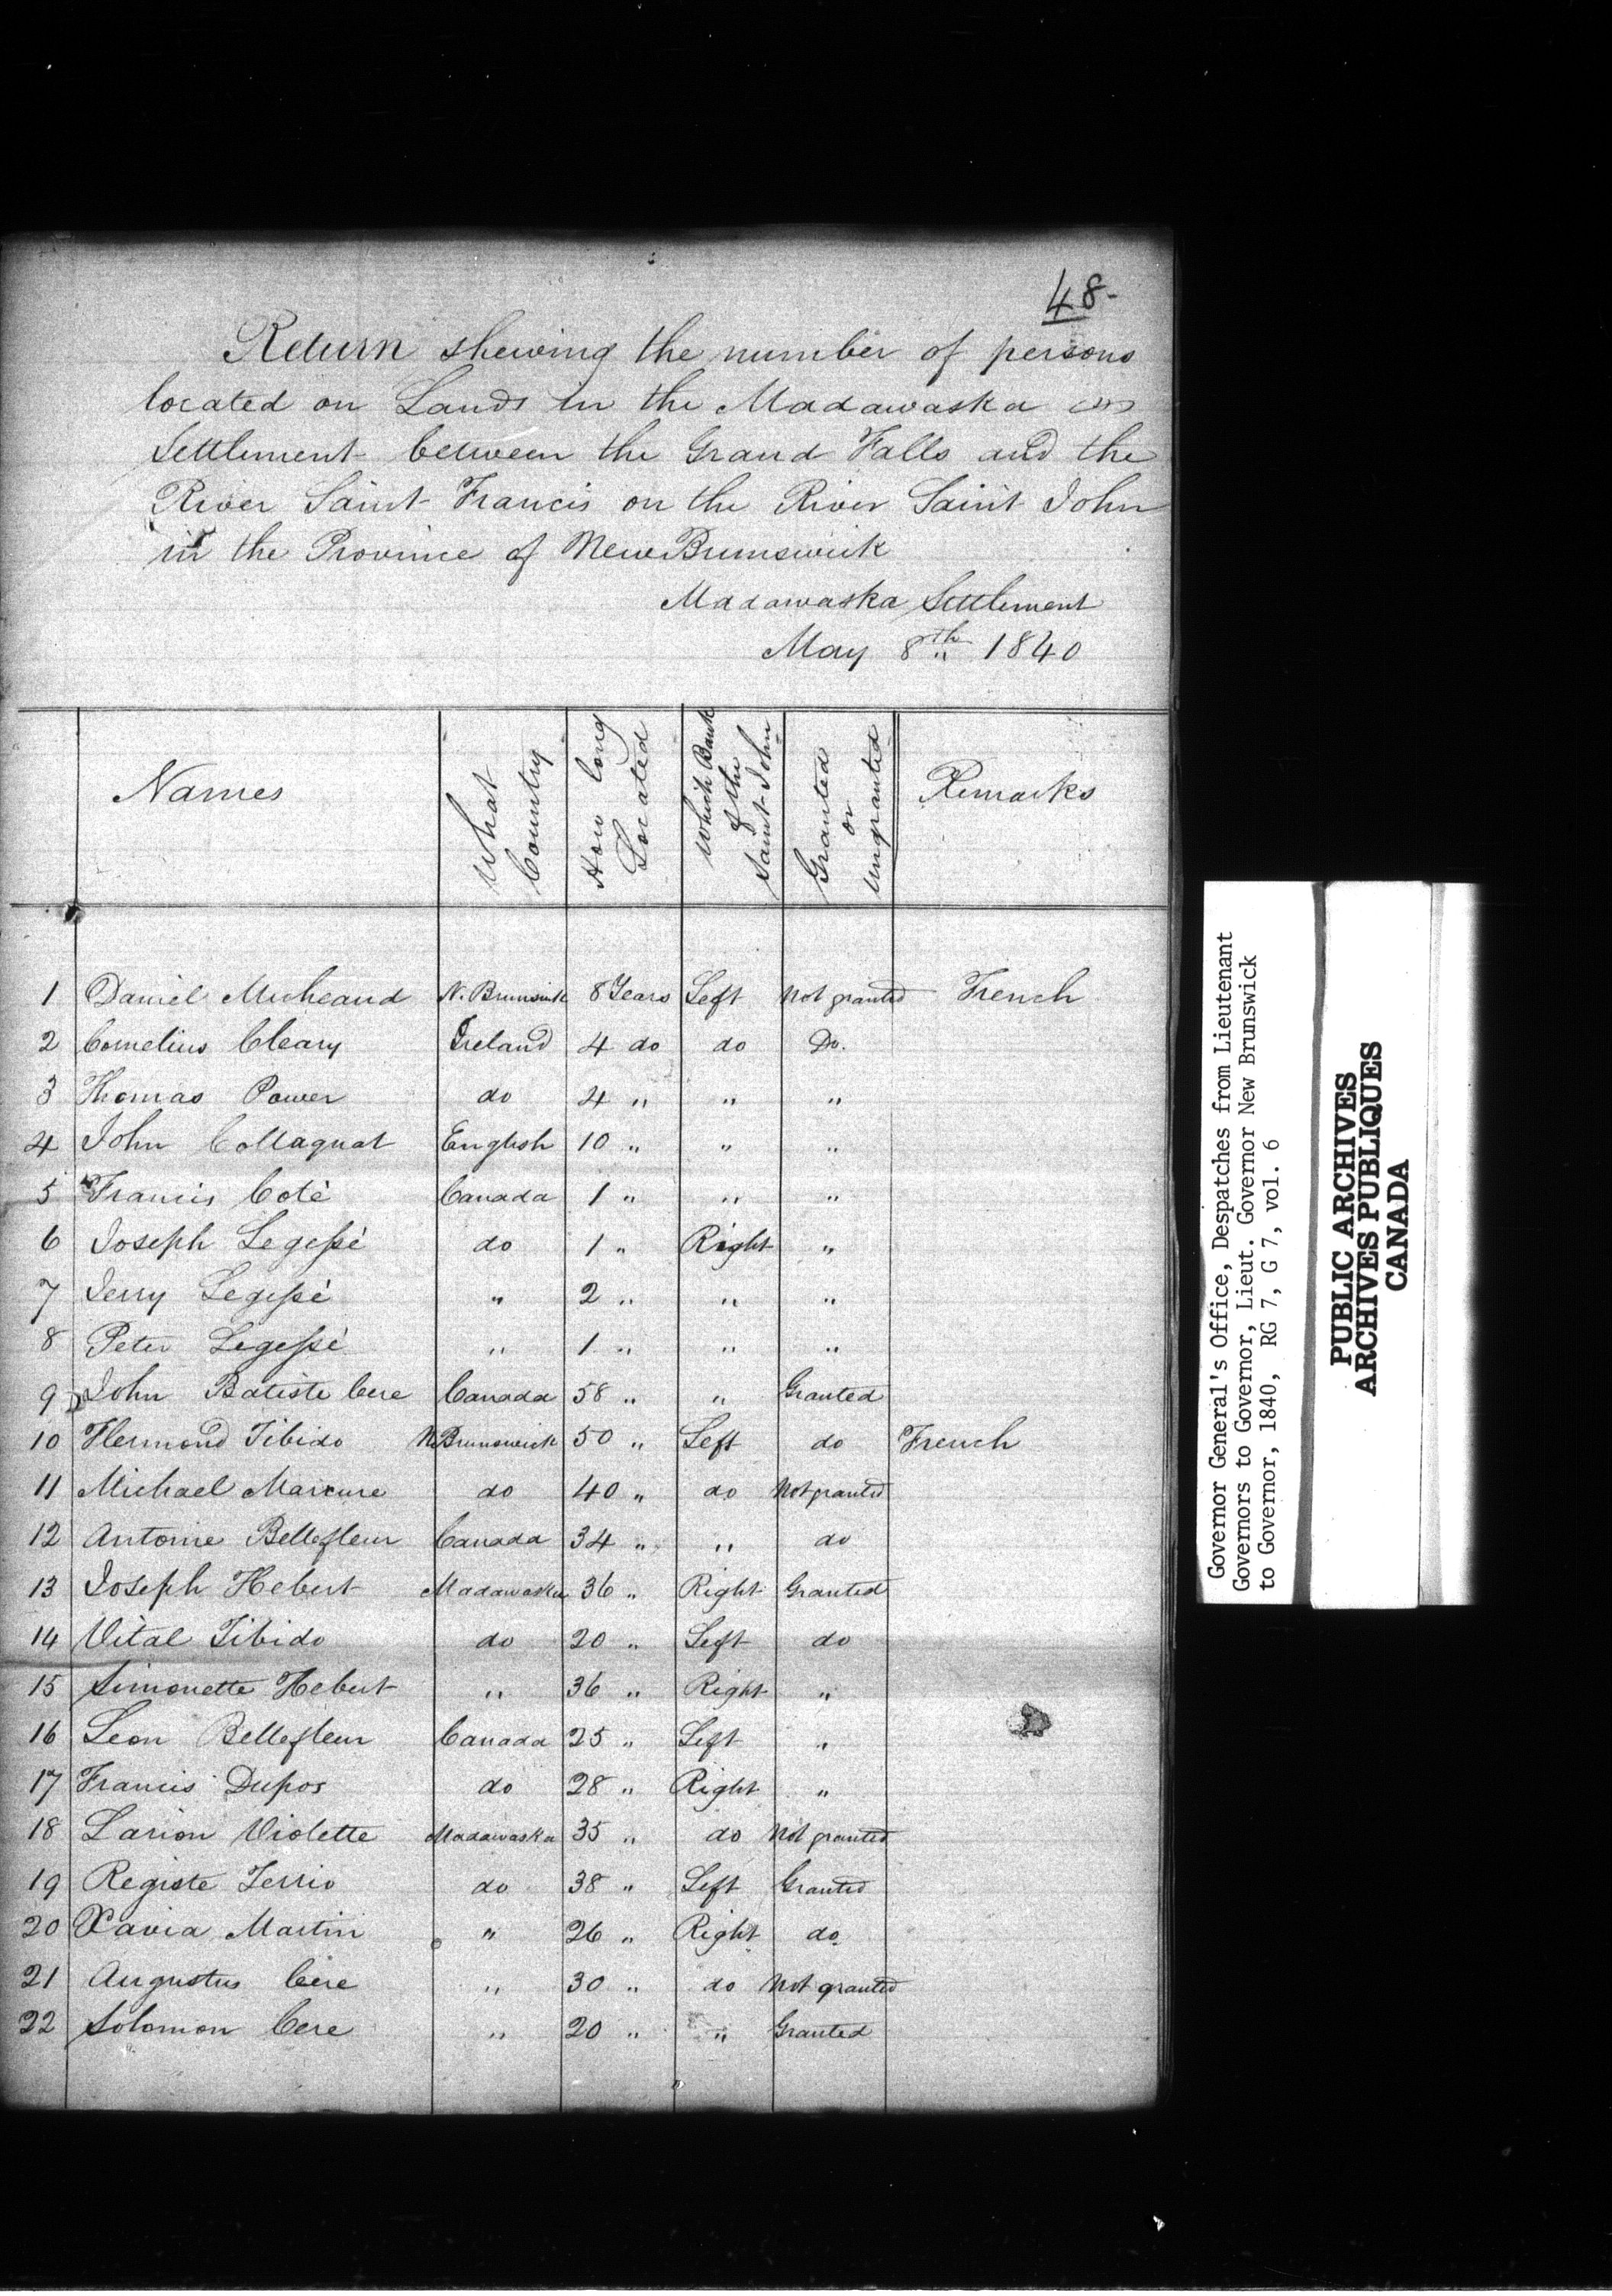 48-
Return shewing the number of persons
located on Lands in the Madawaska
Settlement between the Grand Falls and the
River Saint Francis on the River Saint John
in the Province of New Brunswick
Madawaska Settlement
May 8th 1840
Names What Country How long Located Which Bank of the Saint John Granted or ungranted Remarks
1 Daniel Micheaud N. Brunswick 8 Years Left Not granted French
2 Cornelius Cleary Ireland 4 do do Do.
3 Thomas Power do 4 " " "
4 John Collaguat English 10 " " "
5 Francis Coté Canada 1 " " "
6 Joseph Legessé do 1 " Right "
7 Jerry Legessé " 2 " " "
8 Peter Legessé " 1 " " "
9 John Batiste Cere Canada 58 " " Granted
10 Hermond Tibido N. Brunswick 50 " Left do French
11 Michael Marcure do 40 " do Not granted
12 Antoine Bellefleur Canada 34 " " do
13 Joseph Hebert Madawaska 36 " Right Granted
14 Vital Tibido do 20 " Left do
15 Simonette Hebert " 36 " Right "
16 Leon Bellefleur Canada 25 " Left "
17 Francis Dupos do 28 " Right "
18 Larion Violette Madawaska 35 " do Not granted
19 Registe Terrio do 38 " Left Granted
20 Xavia Martin " 26 " Right do
21 Augustus Cere " 30 " do Not granted
22 Solomon Cere " 20 " " Granted
Governor General's Office, Despatches from Lieutenant
Governors to Governor, Lieut. Governor New Brunswick
to Governor, 1840, RG 7, G 7, vol. 6
PUBLIC ARCHIVES
ARCHIVES PUBLIQUES
CANADA